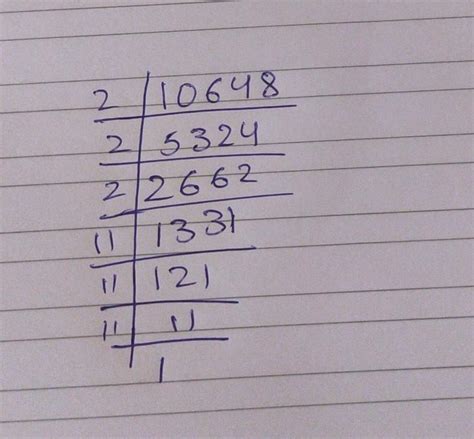 2 | 10648
2 | 5324
2 | 2662
11 | 1331
11 | 121
11 | 11
1